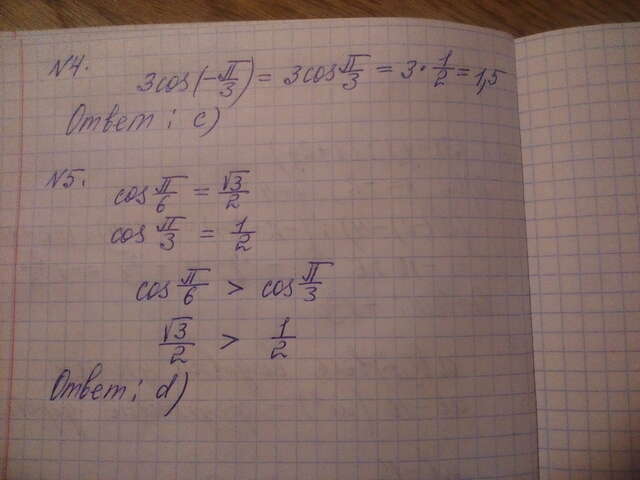 №4.
3cos(-π/3) = 3cos π/3 = 3 · 1/2 = 1,5
Ответ: c)
№5.
cos π/6 = √3/2
cos π/3 = 1/2
cos π/6 > cos π/3
√3/2 > 1/2
Ответ: d)